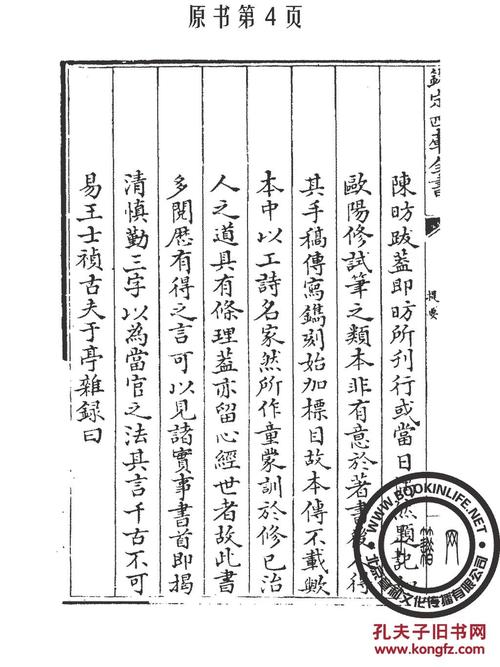 原书第4页
欽定四庫全書
提要
陳昉跋蓋即昉所刊行或當日
歐陽修試筆之類本非有意於著書
其手稿傳寫鐫刻始加標目故本傳不載歟
本中以工詩名家然所作童蒙訓於修己治
人之道具有條理蓋亦留心經世者故此書
多閱歷有得之言可以見諸實事書首即揭
清慎勤三字以為當官之法其言千古不可
易王士禎古夫于亭雜録曰
WWW.BOOKINLIFE.NET
网
孔夫子旧书网
www.kongfz.com